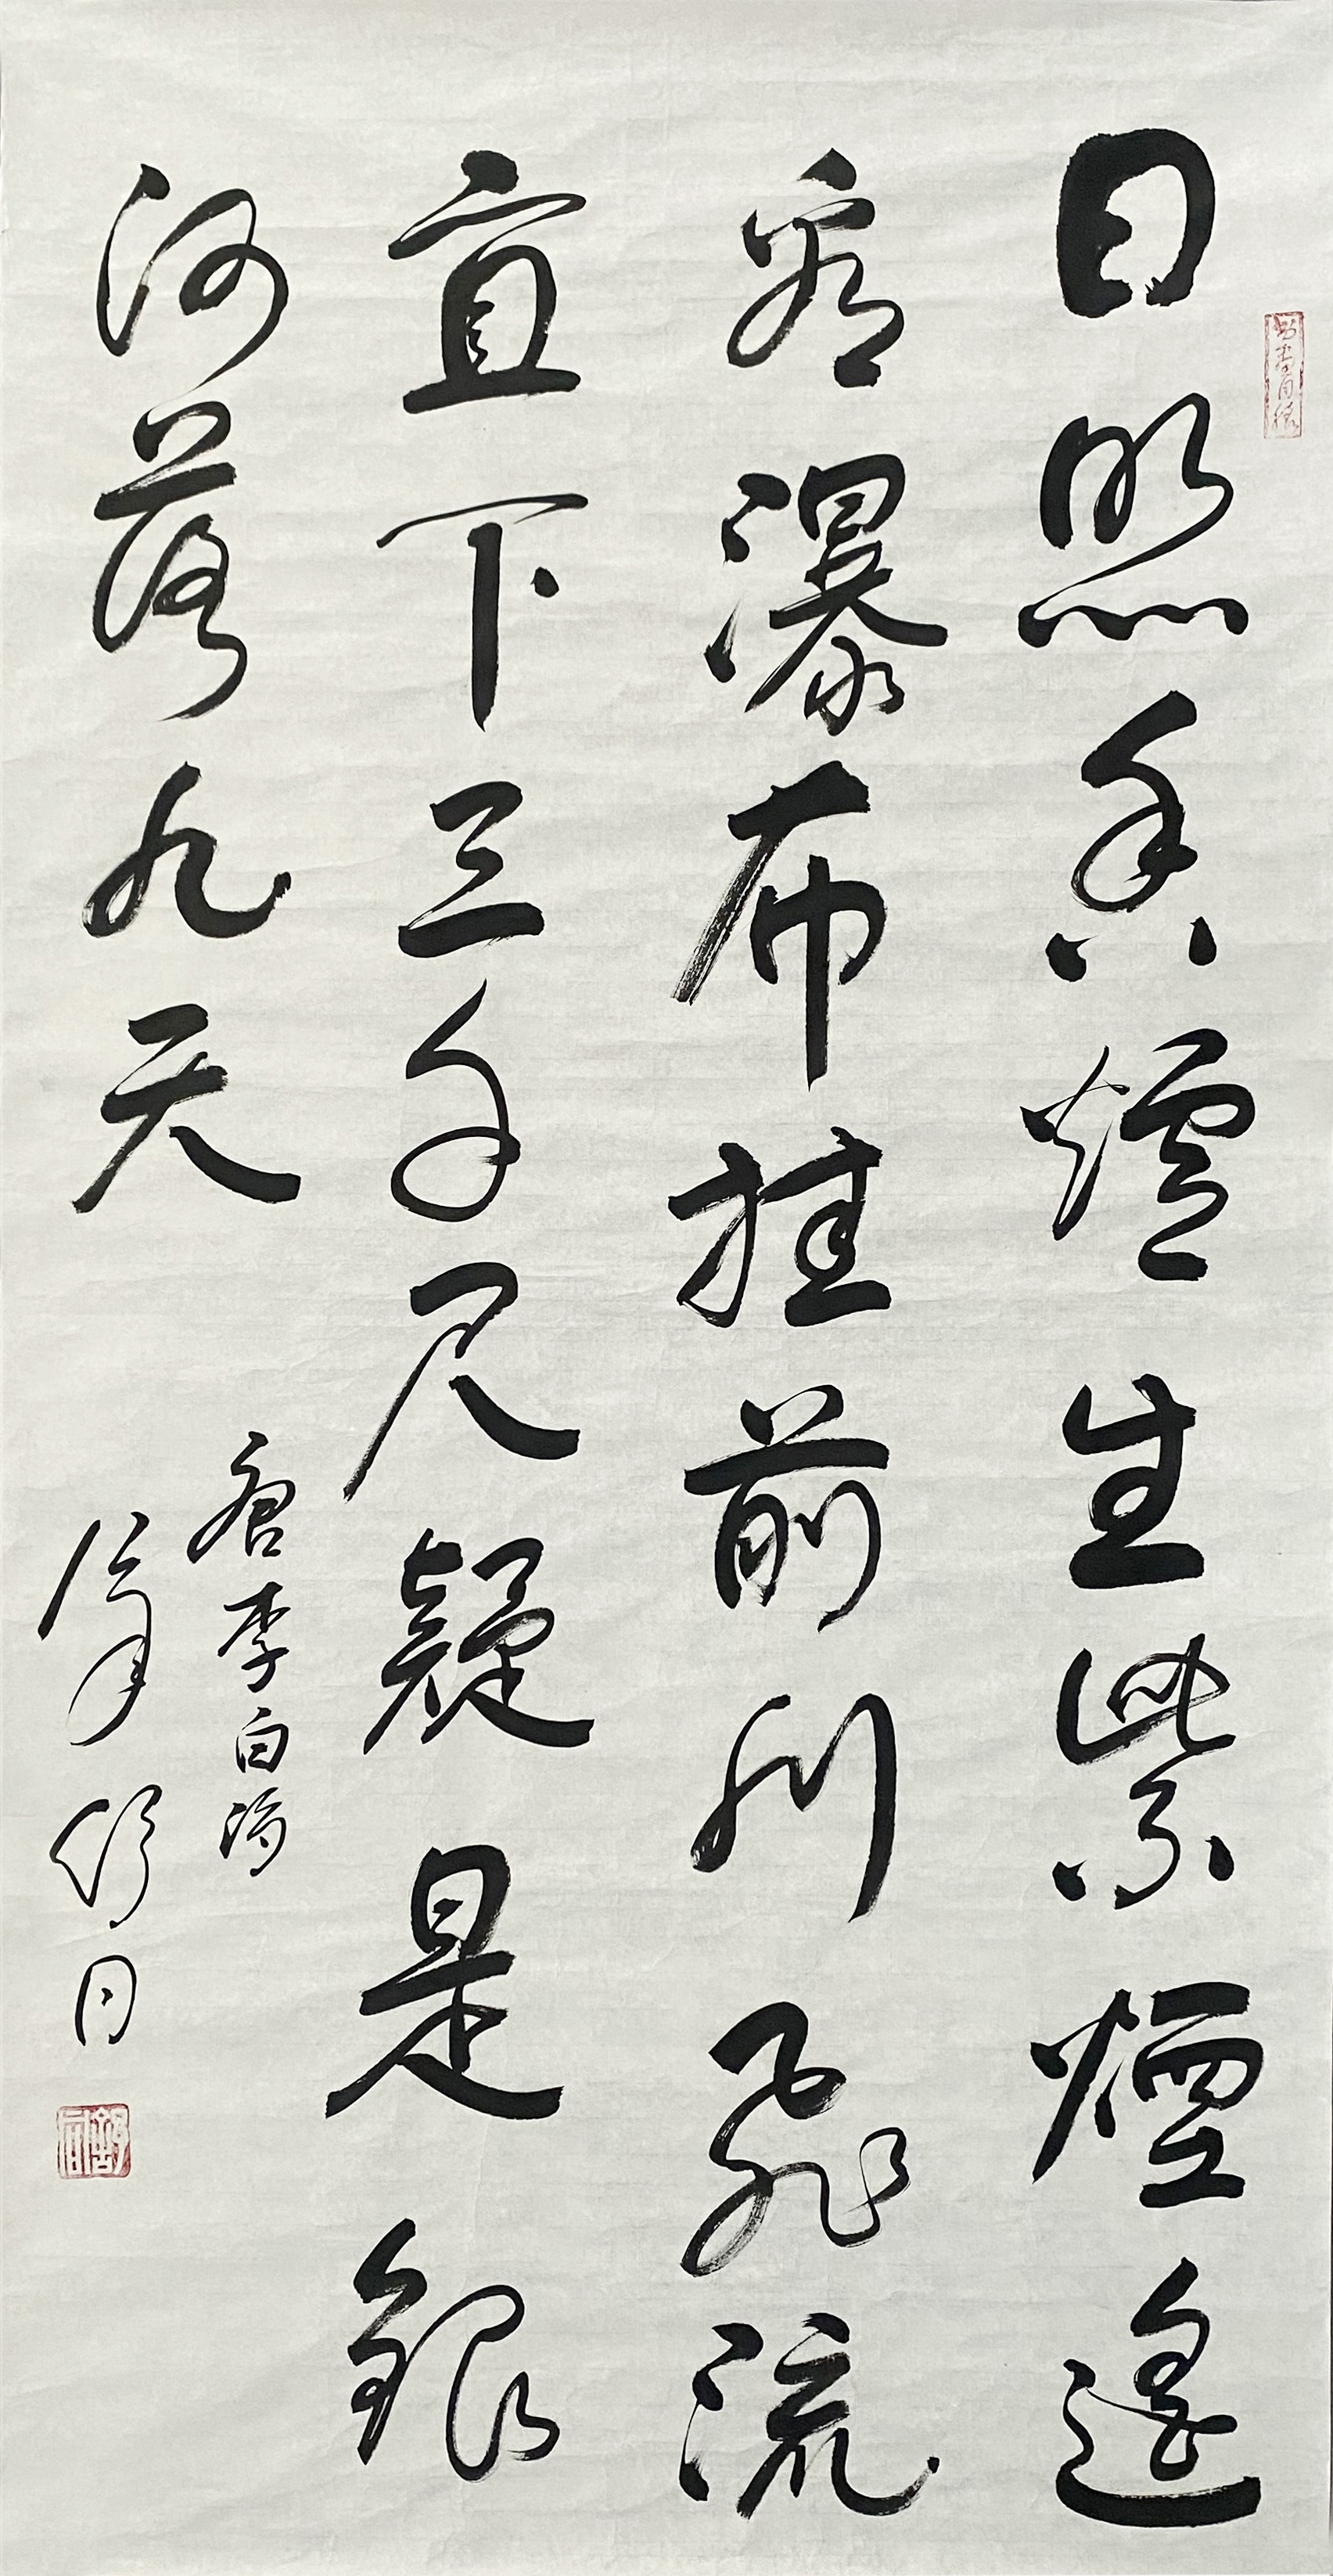 日照香爐生紫煙遙
看瀑布挂前川飛流
直下三千尺疑是銀
河落九天
唐李白詩
舒同
舒同